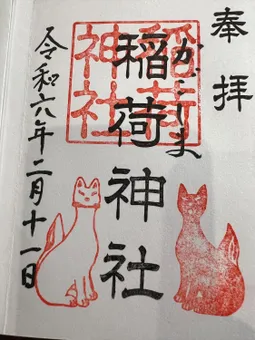 奉拝
稲荷神社
稲荷
神社
令和六年二月十一日